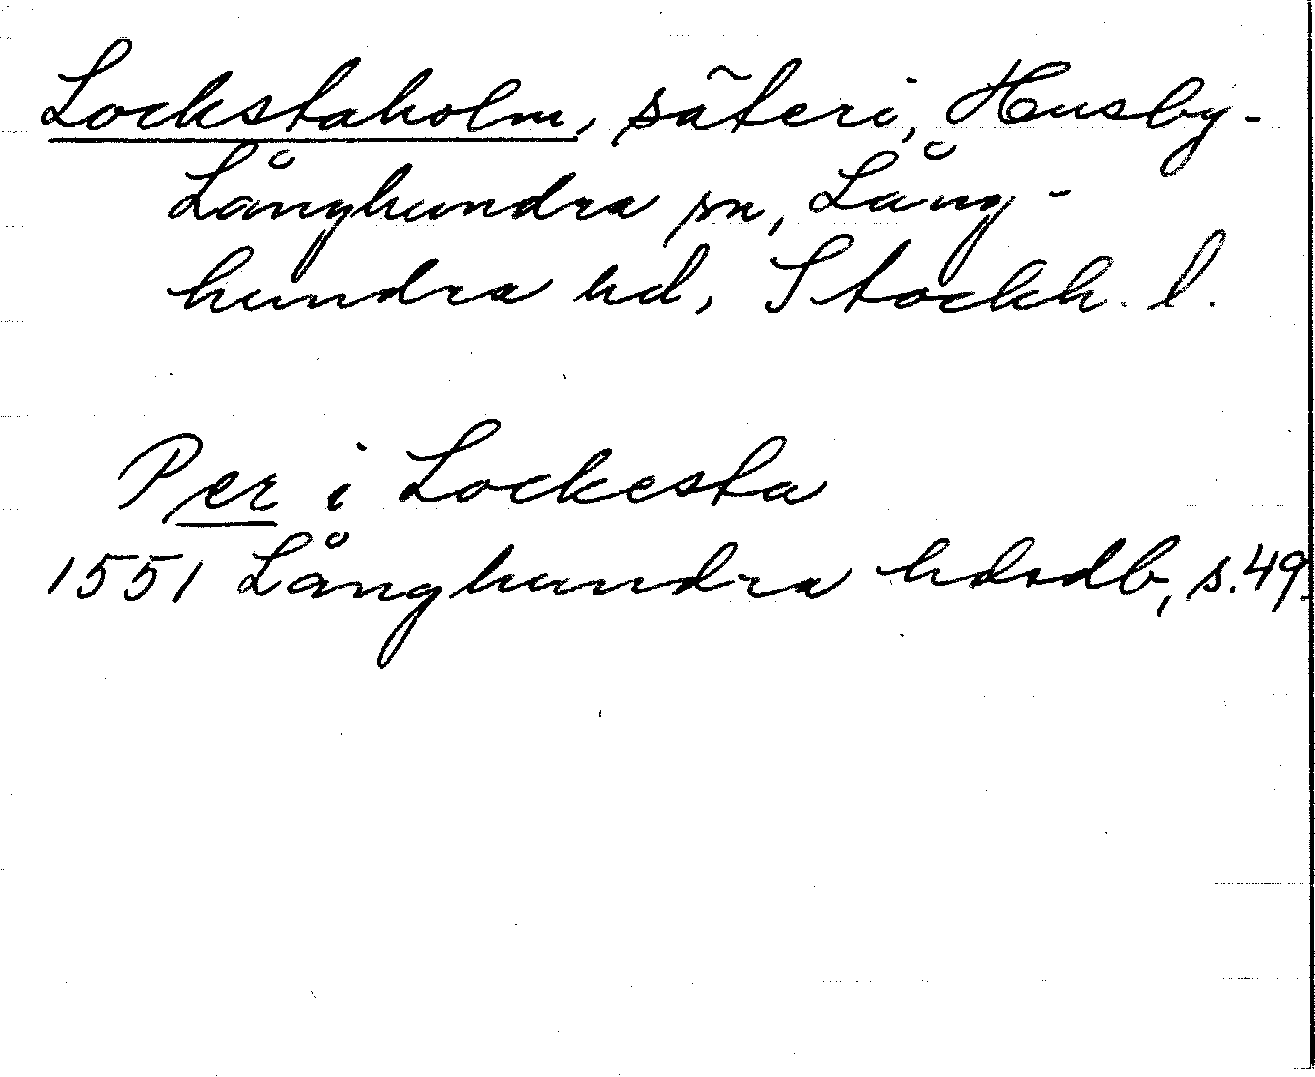 Lockstaholm, säteri, Husby-
Långhundra sn, Lång-
hundra hd, Stockh. l.
Per i Lockesta
1551 Långhundra hdsdb, s. 49.